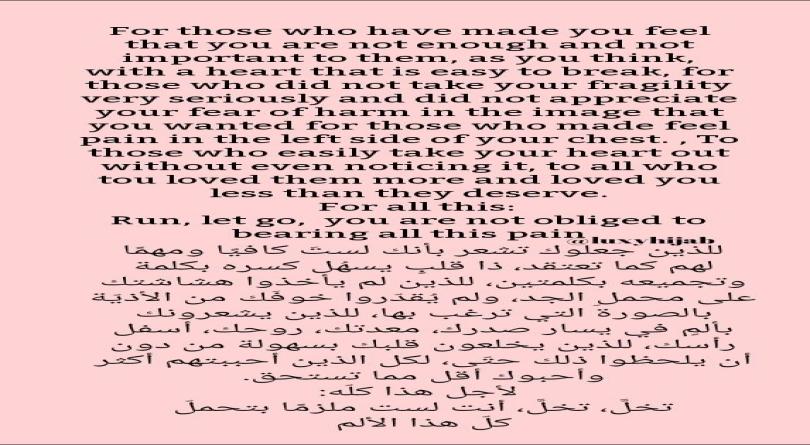 For those who have made you feel
that you are not enough and not
important to them, as you think,
with a heart that is easy to break, for
those who did not take your fragility
very seriously and did not appreciate
your fear of harm in the image that
you wanted for those who made feel
pain in the left side of your chest. , To
those who easily take your heart out
without even noticing it, to all who
tou loved them more and loved you
less than they deserve.
For all this:
Run, let go, you are not obliged to
bearing all this pain
@luxyhijab
للذين جعلوك تشعر بأنك لستَ كافيًا ومهمًا
لهم كما تعتقد، ذا قلبٍ يسهُل كسره بكلمة
وتجميعه بكلمتين، للذين لم يأخذوا هشاشتك
على محمل الجد، ولم يُقدّروا خوفَك من الأذيّة
بالصورة التي ترغب بها، للذين يشعرونك
بألمٍ في يسار صدرك، معدتك، روحك، أسفل
رأسك، للذين يخلعون قلبك بسهولة من دون
أن يلحظوا ذلك حتّى، لكل الذين أحببتهم أكثر
وأحبوك أقل مما تستحق.
لأجل هذا كلّه:
تخلَّ، تخلَّ، أنت لست ملزمًا بتحملّ
كلّ هذا الألم